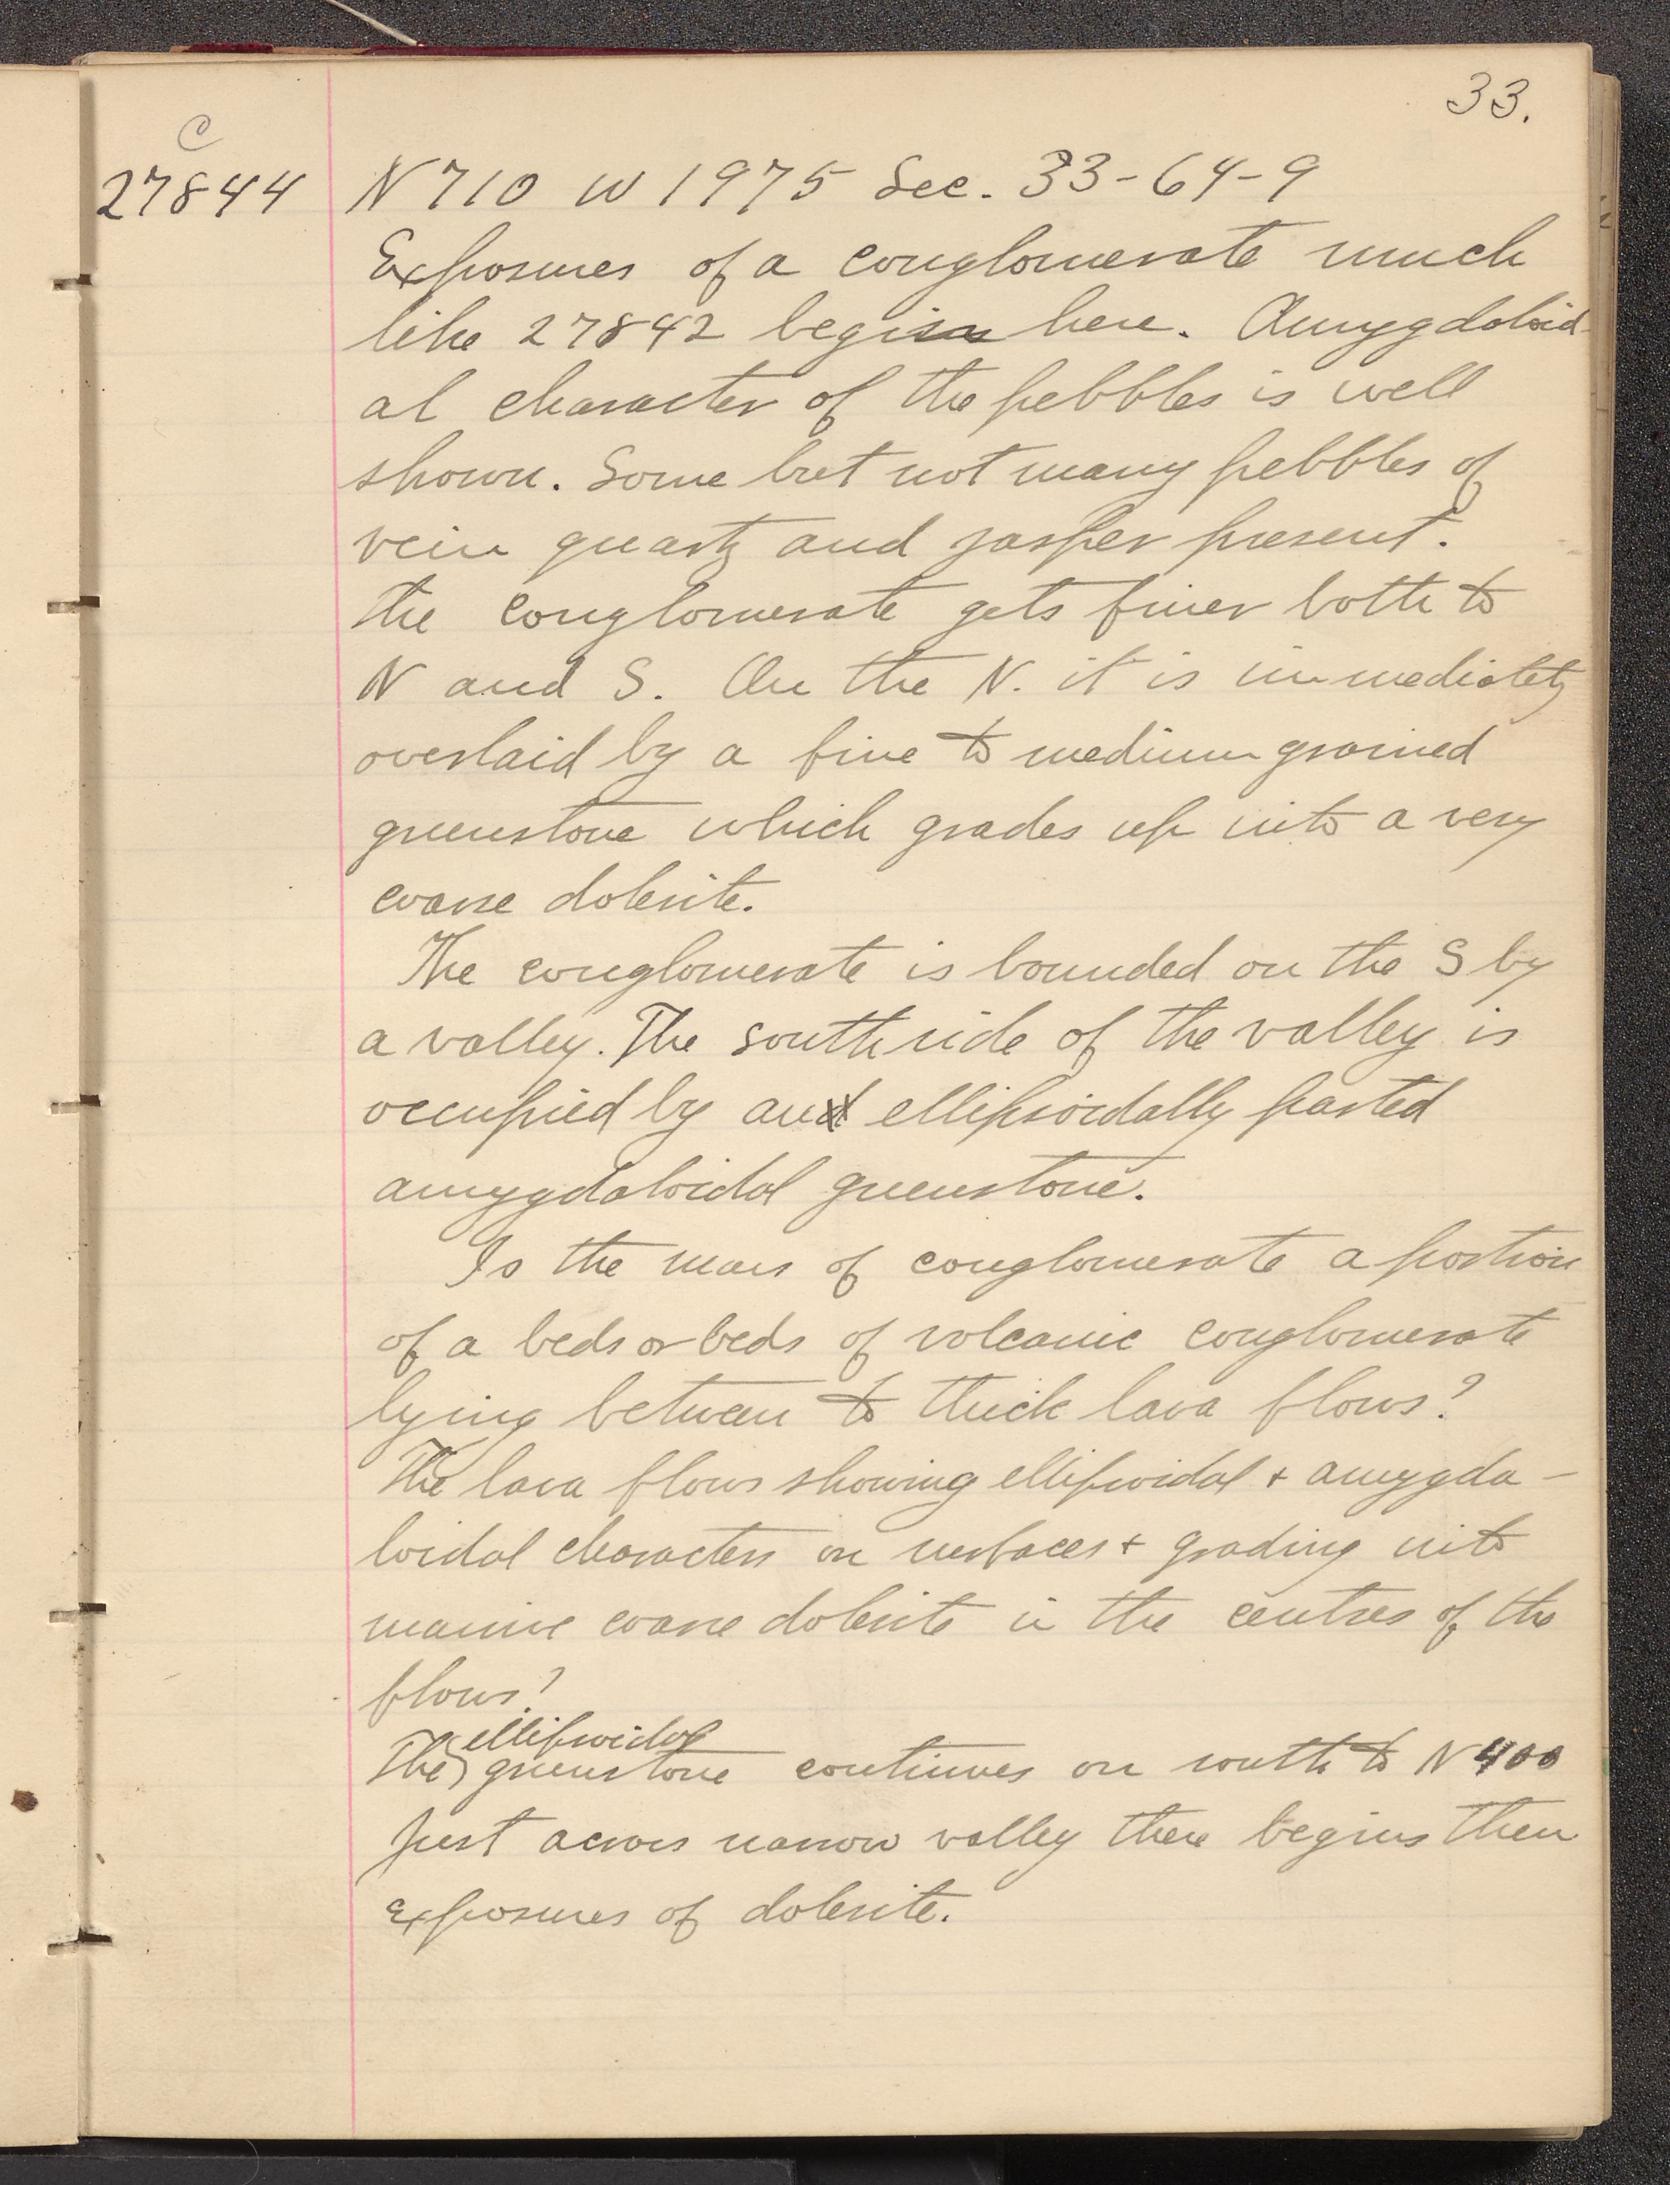 33.
C
27844 N 710 W 1975 Sec. 33-64-9
Exposures of a conglomerate much
like 27842 begin here. Amygdaloid-
al character of the pebbles is well
shown. Some but not many pebbles of
vein quartz and jasper present.
The conglomerate gets finer both to
N and S. On the N. it is immediately
overlaid by a fine to medium grained
greenstone which grades up into a very
coarse dolerite.
The conglomerate is bounded on the S by
a valley. The south side of the valley is
occupied by an ellipsoidally parted
amygdaloidal greenstone.
Is the mass of conglomerate a portion
of a beds or beds of volcanic conglomerate
lying between to thick lava flows?
The lava flows showing ellipsoidal + amygda-
loidal characters on surfaces + grading into
massive coarse dolerite in the centres of the
flows?
ellipsoidal
The greenstone continues on south to N 400
Just across narrow valley there begins then
exposures of dolerite.